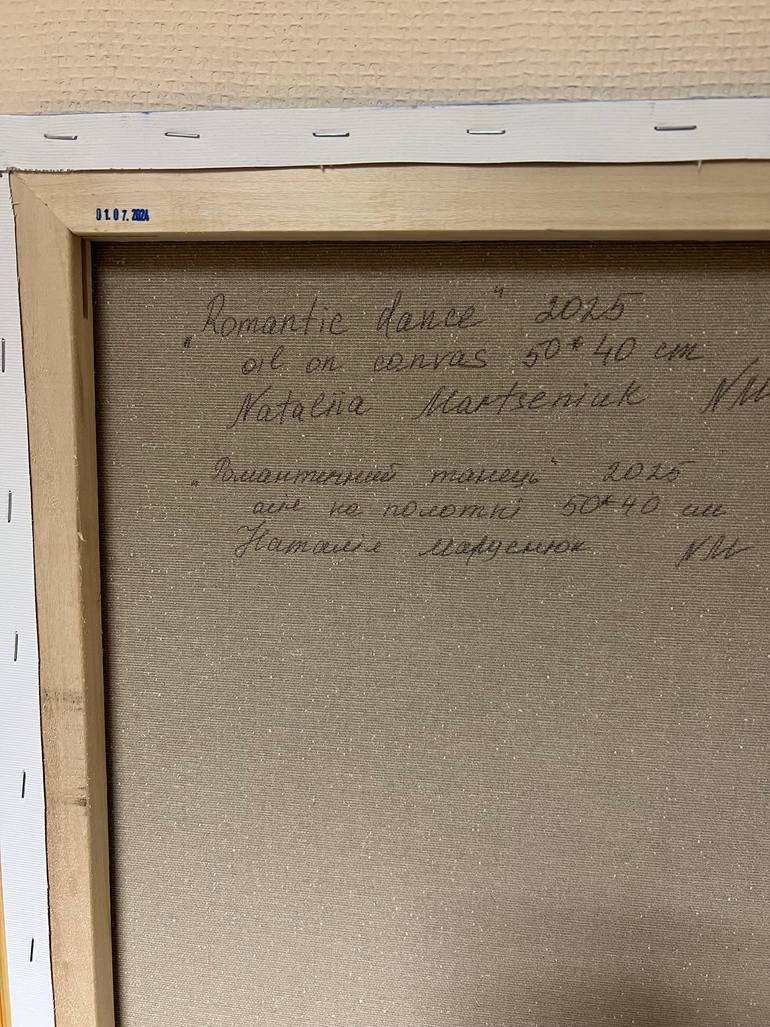 01.07.2024
"Romantic dance" 2025
oil on canvas 50*40 cm
Nataliia Martseniuk NM
"Романтичний танець" 2025
олія на полотні 50*40 см
Наталія Марценюк NM